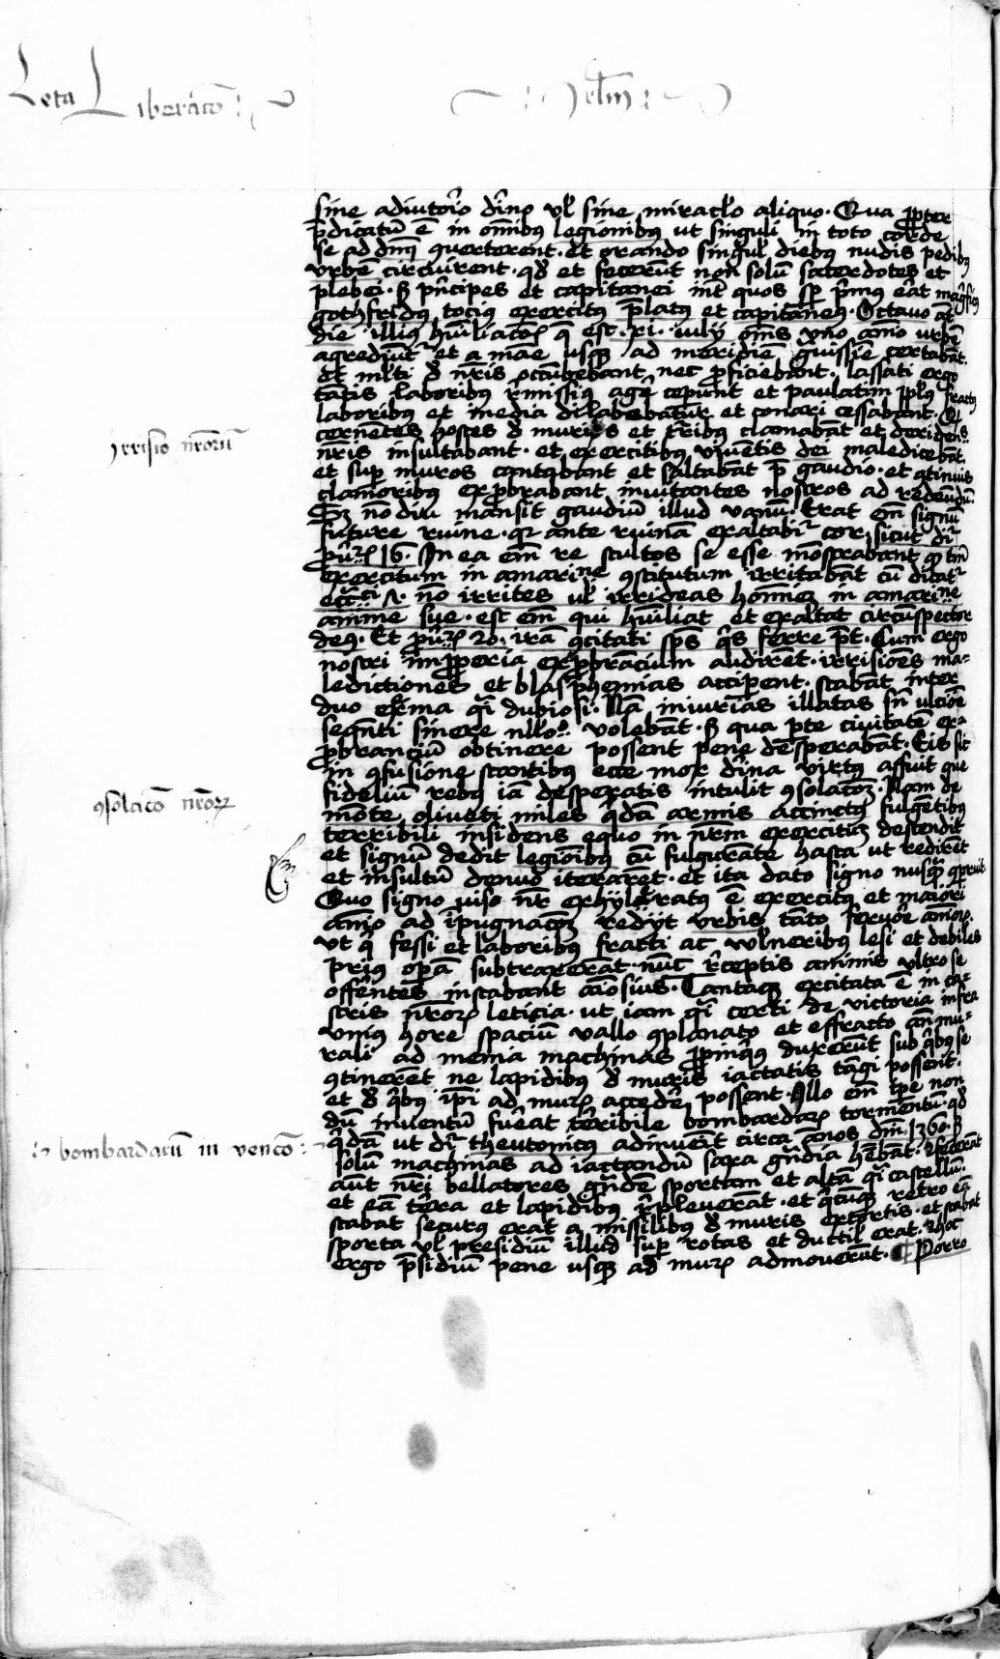 Leta Liberatō : Jrl̄m :
sine adiutor̄io diṽno vl̄ sine miraclo aliquo. Qua pp̱ter
p̄dicatū ē in om̄ibus legionibus ut singuli in toto corde
se ad dn̄m ꝯuerterent. et orando singul̄ diebus nudis pedibꝫ
vrbē circuirent. qd̄ et fecerūt non solū sacerdotes et
plebei. sꝫ pn̄cipes et capitanei int̄ quos sp̄ p̄mus erat magnificus
gotfridus tocius exercitus p̄latus et capitaneus. Octauo aut̄
die illius hūiliacōis q̄ est .xi. iulij om̄s vno aīo urbē
agrediunt̄ et a mane usqꝫ ad meridiē grauissīe certabāt.
Et ml̄ti d̄ nr̄is occūbebant nec p̄ficiebant. lassati ergo
tātis laboribus rēmissius ager̄ cepunt et paulatim ppl̄us fractus
laboribus et inedia dilabebatur et conari cessabant. Qd̄
cernētes hostes d̄ muris et t̄ribus clamabāt et deridens
nr̄is insultabant. et exercitibus viuentis dei maledicebāt.
et sup̄ muros cantabant et saltabāt p̄ gaudio. et ꝯtinuis
clamoribus exp̄brabant inuitantes nostros ad redeūdū.
Sꝫ nō diu mansit gaudiū illud vanū. Erat em̄ signū
future ruine. qr ante ruinā exaltabit̄ cor, sicut dr̄
prou. 16. In ea em̄ re stultos se esse mōstrabant qd̄ tm̄
exercitum in amaritudine ꝯstitutum irritabāt cū dicat̄
eccti .7. nō irrites vl̄ irrideas hoīem in amaritudine
anime sue. est em̄ qui hūiliat et exaltat circūspector
deus. Et prou. 20. irā ꝯcitati sps̄ q̄s ferre pt̄. Cum ergo
nostri improperia exp̄brancium audirēt. irrisiōes ma-
ledictiones et blasphemias acciperent. stabāt inter
duo extrema q̄si dubiosi. Nā iniurias illatas sn̄ ulciōe
segn̄ti sinere nollo volebāt. sꝫ qua p̄te ciuitatē ex-
p̄branciū obtinere possent pene desperabāt. Eis sic
in ꝯfusione stantibus ecce mox diūa virtus affuit que
fideliū rebus iā desperatis intulit ꝯsolacōeꝫ. Nam de
mōte oliueti miles q̄dā armis accinctus fulgētibꝫ
terribili insidens equo in nr̄m exercitū descendit
et signū dedit legionibus cū fulgurāte hasta ut redirēt
et insultū denuo iterarēt. et ita dato signo nusquā ꝯparuit.
Quo signo viso nr̄ exhylaratus ē exercitus et maiori
aīo ad īpugnacōeꝫ redijt vrbis tāto feruore aīoꝝ
vt q̄ fessi et laboribus fracti ac vulneribus lesi et debiles
prius opā subtraxerāt. nūc r̄ceptis animis ultro se
offerntes instabant aīosius. Tantaqꝫ excitata ē in ca-
stris nr̄oꝝ leticia. ut iam q̄si certi de victoria infra
vnius hore spaciū vallo ꝯplanato et effracto ante mu-
rali ad menia machinas ppinquius duxerūt sub q̄bus se
ꝯtinerēt ne lapidibus d̄ muris iactatis tāgi possent.
et d̄ q̄bus ip̄i ad muꝝ acceder̄ possent. Illo em̄ tp̄e non
dū inuentū fuerat terribile bombardaꝝ tormentū. qd̄
q̄dā ut dr̄ theutonicus adinuenit circa ānos dn̄i 1360. sꝫ
solū machinas ad iactandū saxa gn̄dia hēbāt. Fecerāt
aūt nr̄i bellatores gn̄dē sportam et altā q̄si castellū.
et eā terra et lapidibus ip̄leuerāt. et qn̄cūqꝫ retro eā
stabat securus erat a missilibus d̄ muris extortis. et stabat
sporta vl̄ presidiū illud sup̄ rotas et ductile erat. ⁊ hoc
ergo p̄sidiū pene usqꝫ ad muꝝ admouerūt. ¶ Porro
yrrisio nr̄oruꝫ
ꝯsolacō nr̄oꝝ
bombardarū in vencō: